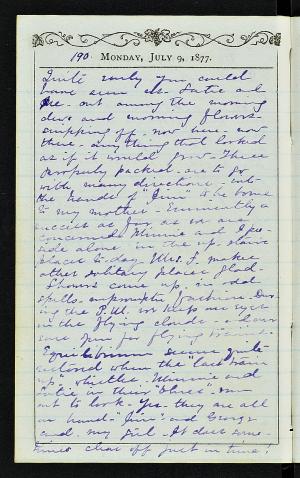 190. MONDAY, JULY 9, 1877.
Quite early you could
have seen us. Satie and
me out among the morning
dew and morning flowers
snipping off now here, now
there anything that looked
as if it would grow. These
properly packed are to go
with many directions into
the hands of "Jim" to be borne
to my mother. Eminently a
success as far as we are
concerned. Minnie and I
side alone in the up stairs
place to-day. Mrs. F. makes
other solitary places glad.
Showers come up, in odd
spells impromptu fashion.
ing the P.M. we keep an eye
on the flying clouds
for flying
Equilibrium seems quite
restored when the "last train
up" whistles. Minnie and
Satie in their
out to look. Yes they are all
on hand. "Jim" and George
and my girl. It does some-
times clear off just in time!